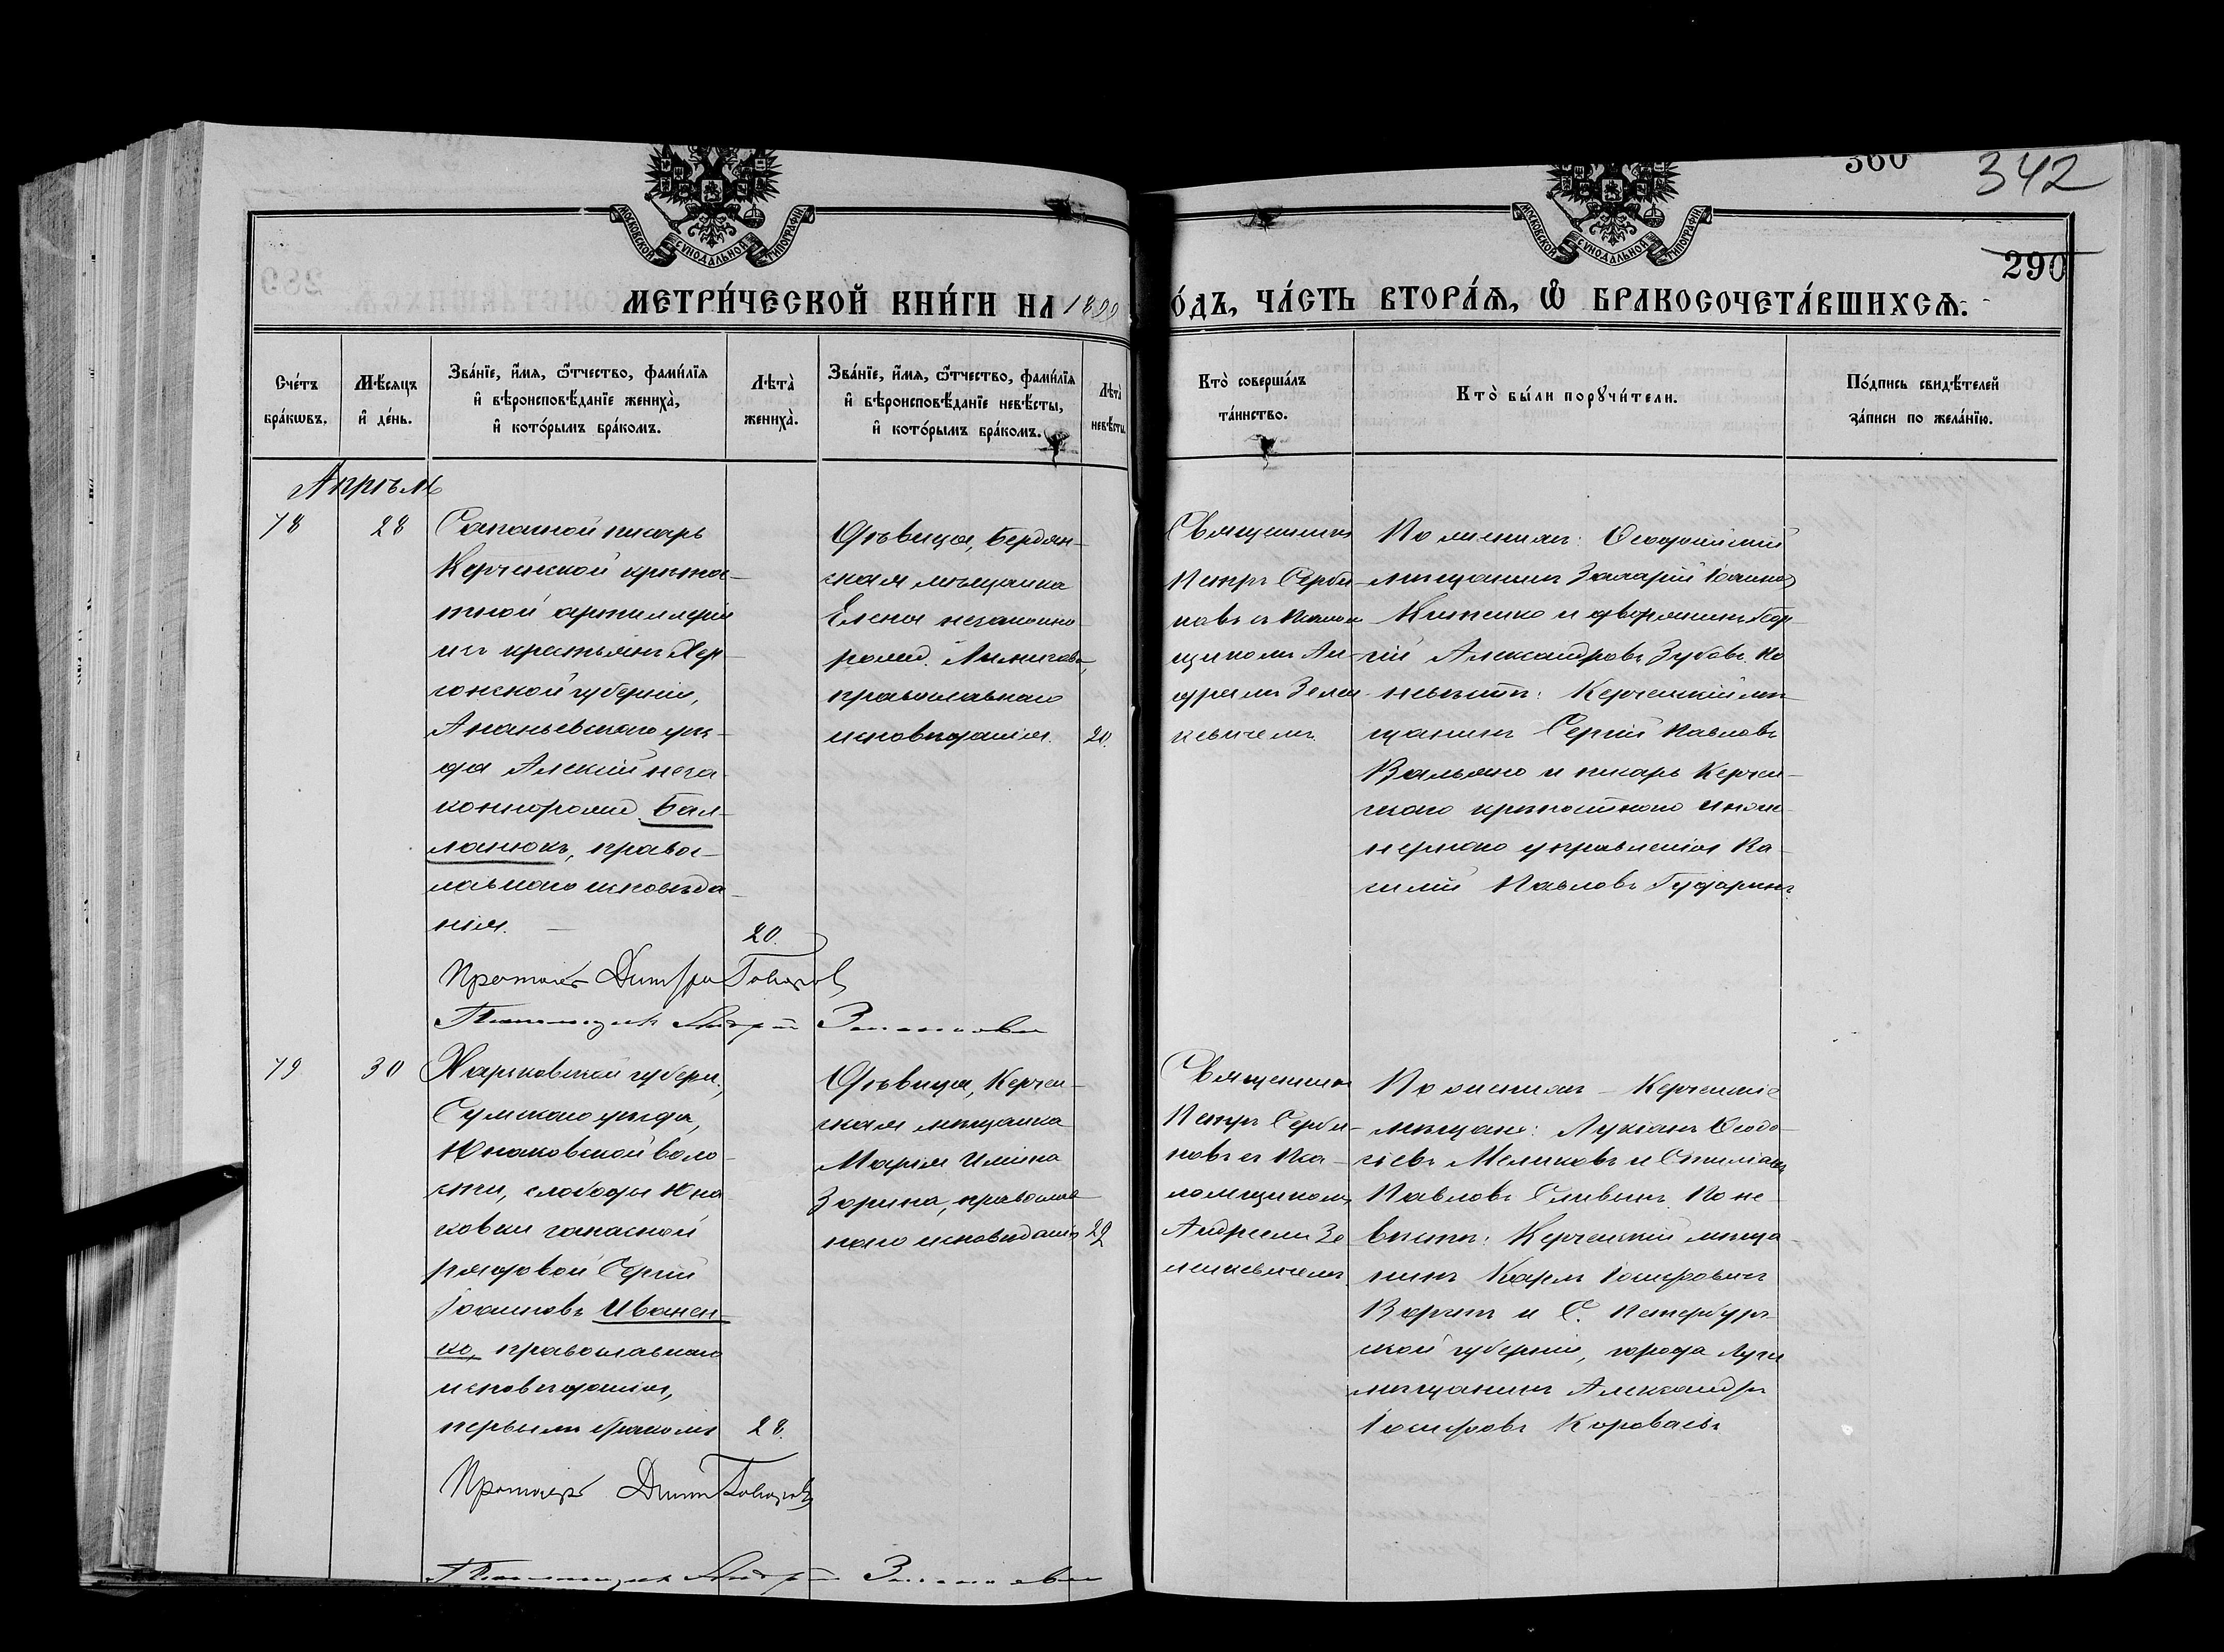 360 342
МОСКОВСКОЙ СѴНОДАЛЬНОЙ ТИПОГРАФІИ
МОСКОВСКОЙ СѴНОДАЛЬНОЙ ТИПОГРАФІИ
290
МЕТРИ́ЧЕСКОЙ КНИ́ГИ НА 1899
О́ДЪ, ЧА́СТЬ ВТОРА́Ѧ, Ѽ БРАКОСОЧЕТА́ВШИХСѦ.
Сче́тъ
бра́кѡвъ.
Мѣ́сяцъ
и҆ де́нь.
Зва́нїе, и҆́мя, ѻ҆́тчество, фами́лїя
и҆ вѣроисповѣ́данїе жениха̀,
и҆ кото́рымъ бра́комъ.
Лѣта̀
жениха̀.
Зва́нїе, и҆́мя, ѻ҆́тчество, фами́лїя
и҆ вѣроисповѣ́данїе невѣ́сты,
и҆ кото́рымъ бра́комъ.
Лѣта̀
невѣ́сты.
Кто̀ соверша́лъ
та́инство.
Кто̀ бы́ли порꙋчи́тели.
По́дпись свидѣ́телей
за́писи по жела́нїю.
Апрѣль
78
28
писарь
Керченской крѣпос-
тной артиллеріи
изъ крестьянъ Хер-
сонской губерніи,
Ананьевскаго уѣз-
да Алексій неза-
коннорожд. Бал-
ланюкъ, правос-
лавнаго исповѣда-
нія.
20.
Дѣвица, Бердян-
ская мѣщанка
Елена незаконно
рожд.
православнаго
исповѣданія.
20.
Священникъ
Петръ Серби-
новъ съ псалом
щикомъ Ан-
дреемъ Зелен
кевичемъ
По женихѣ: Ѳеодосійскій
мѣщанинъ Захарій Іоанновъ
Китенко и дворянинъ Геор-
гій Александровъ Зубовъ. По
невѣстѣ: Керченскій мѣ-
щанинъ Сергій Павловъ
Вальяно и писарь Керчен-
скаго крѣпостного инже-
нернаго управленія Ва-
силій Павловъ
Протоіер Димитр
Псаломщикъ Андрей
79
30
Харьковской губерн.,
Сумскаго уѣзда,
Юнаковской воло-
сти, слободы Юна-
ковки запасной
рядовой Сергій
Іоанновъ Иванен-
ко, православнаго
исповѣданія,
первымъ бракомъ
28.
Дѣвица, Керчен-
ская мѣщанка
Марія Ильина
Зорина, православ
наго исповѣданія
22
Священникъ
Петръ Серби-
новъ съ пса-
ломщикомъ
Андреемъ Зе
ленкевичемъ.
По женихѣ - Керченскіе
мѣщане: Лукіанъ Ѳеодо-
сіевъ Мелиховъ и Стиліанъ
Павловъ Сливинъ. По не-
вѣстѣ: Керченскій мѣща-
нинъ Карлъ Іосифовичъ
и С. Петербург-
ской губерніи, города Луги
мѣщанинъ Александръ
Іосифовъ Короваевъ
Протоіер Димит
Псаломщикъ Андрей